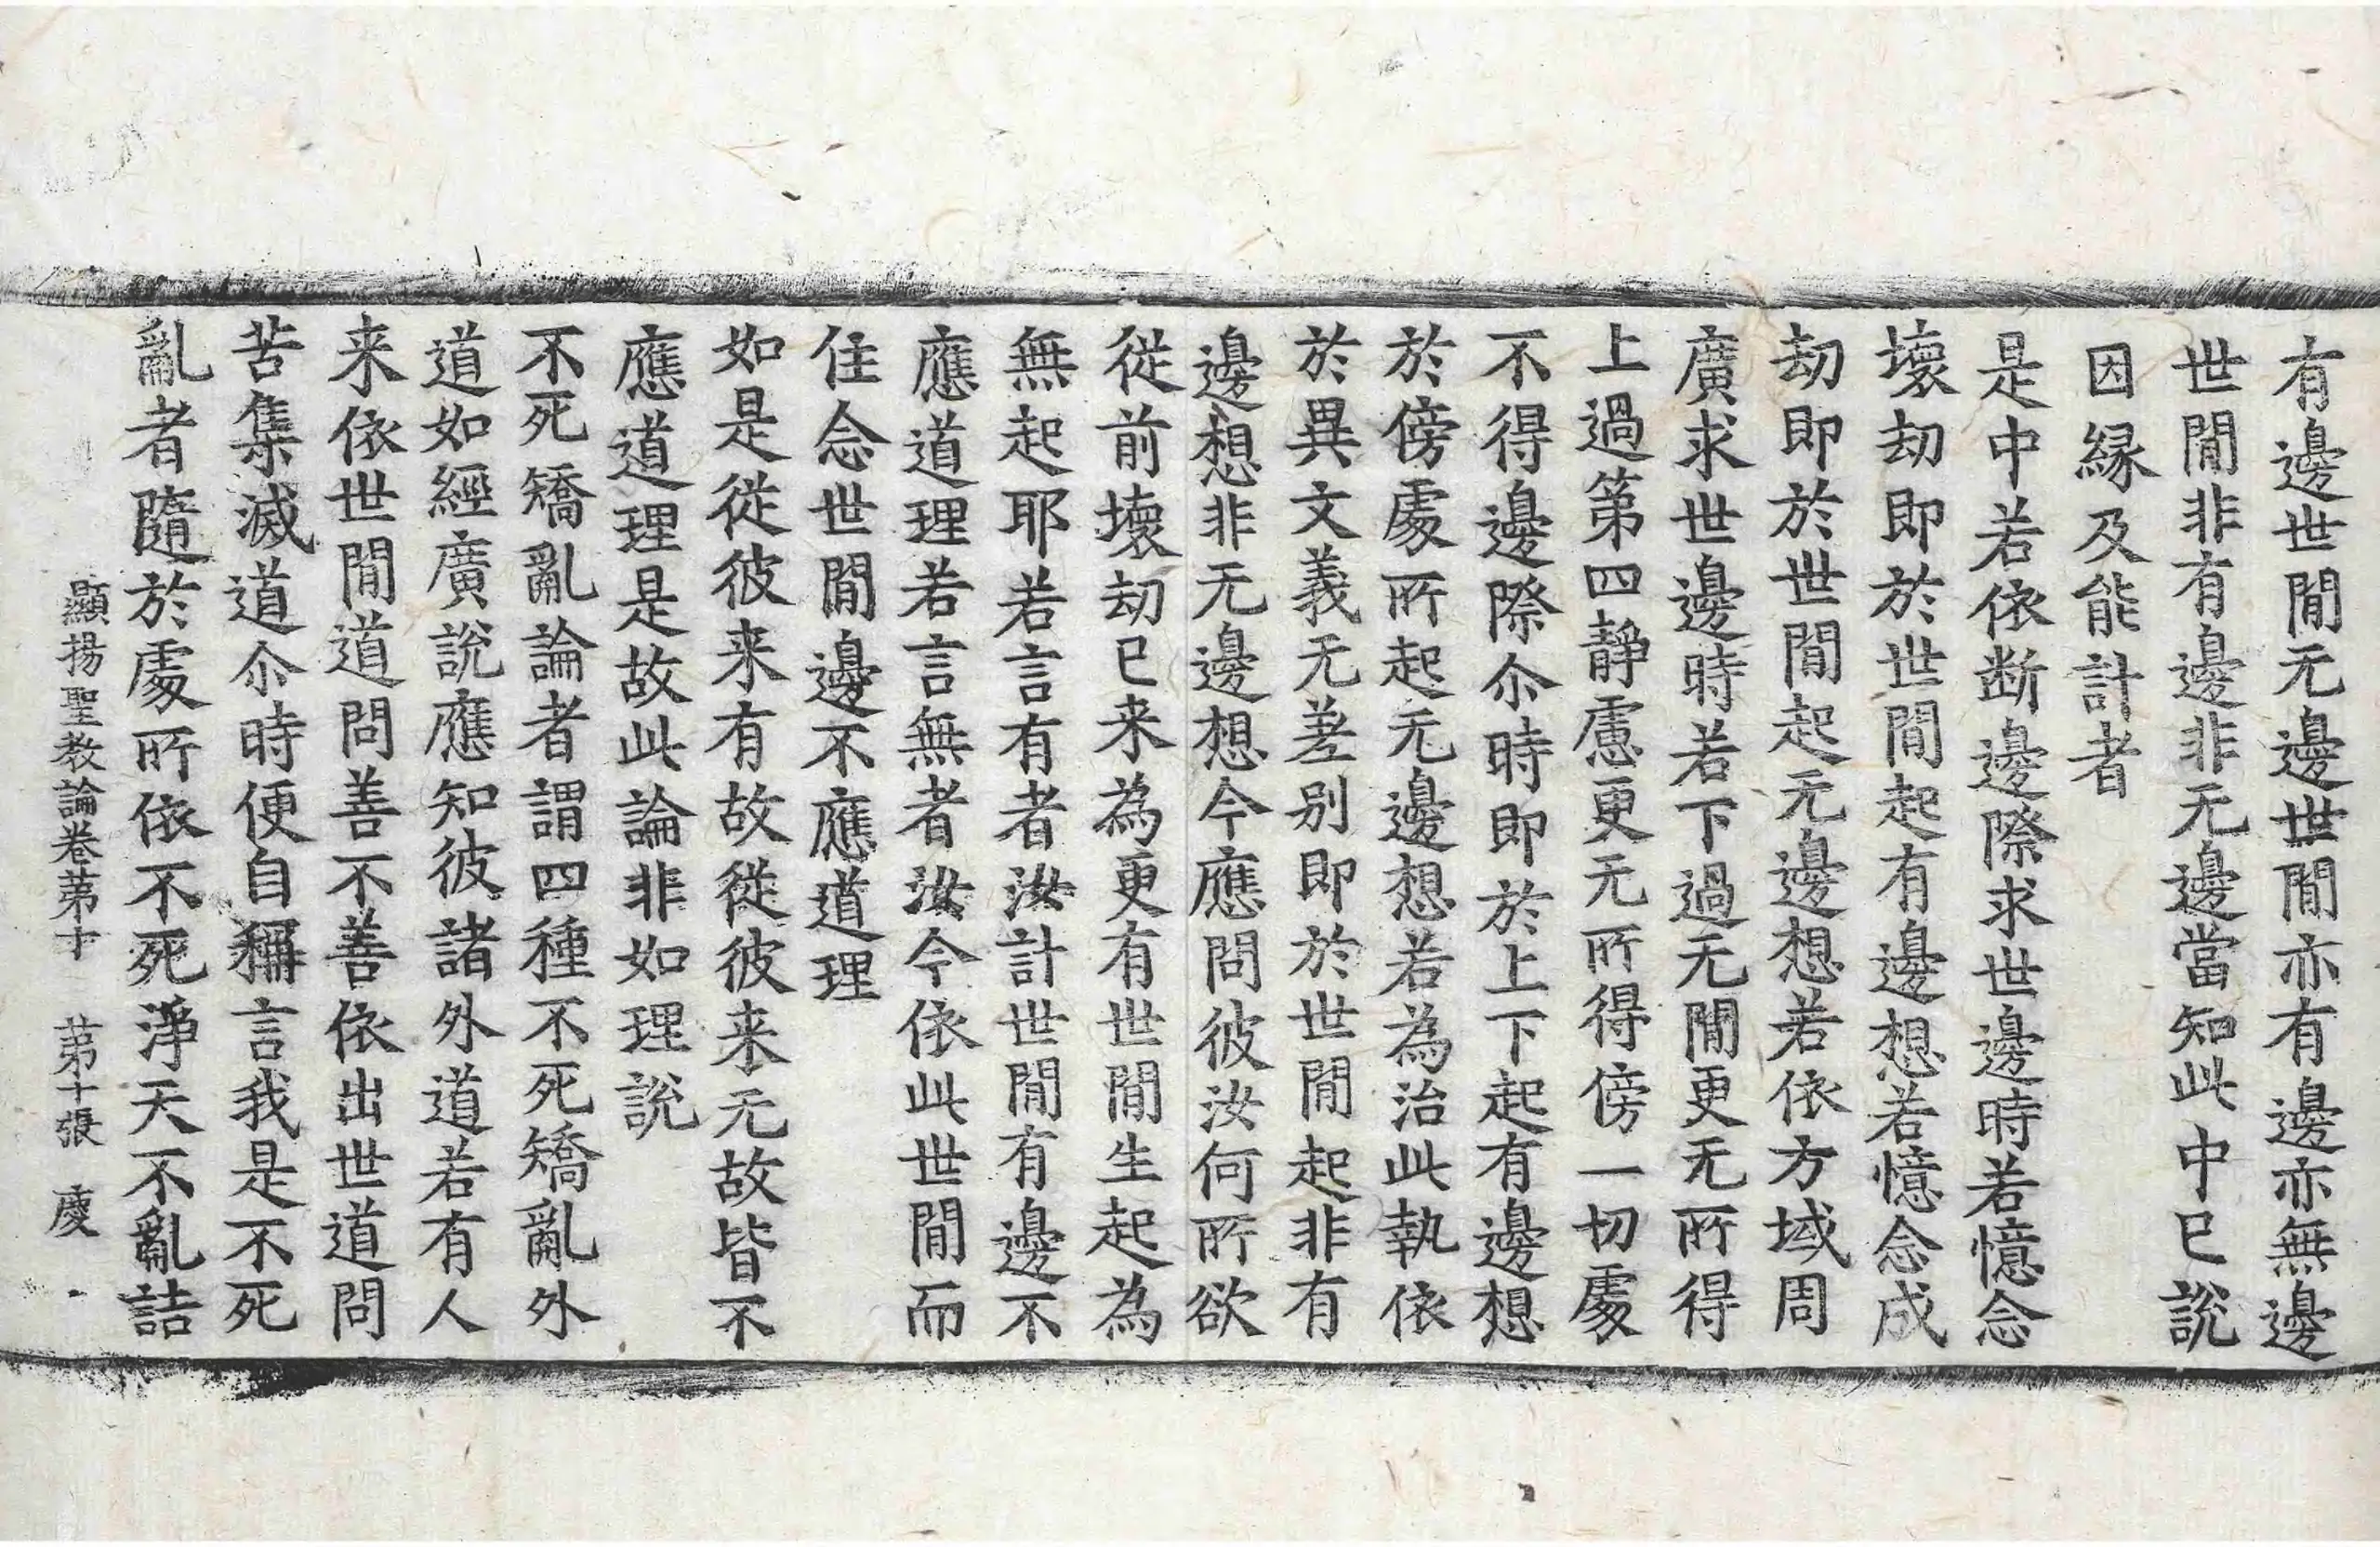 有邊世間无邊世間亦有邊亦無邊
世間非有邊非无邊當知此中已說
因縁及能計者
是中若依断邊際求世邊時若憶念
壞劫即於世間起有邊想若憶念成
劫即於世間起无邊想若依方域周
廣求世邊時若下過无間更无所得
上過第四靜慮更无所得傍一切處
不得邊際尒時即於上下起有邊想
於傍處所起无邊想若為治此執依
於異文義无差別即於世間起非有
邊想非无邊想今應問彼汝何所欲
從前壞劫已来為更有世間生起為
無起耶若言有者汝計世間有邊不
應道理若言無者汝今依此世間而
住念世間邊不應道理
如是從彼来有故從彼来无故皆不
應道理是故此論非如理說
不死矯亂論者謂四種不死矯亂外
道如經廣說應知彼諸外道若有人
来依世間道問善不善依出世道問
苦集滅道尒時便自稱言我是不死
亂者隨於處所依不死淨天不亂詰
顯揚聖教論卷苐十 苐十張 慶